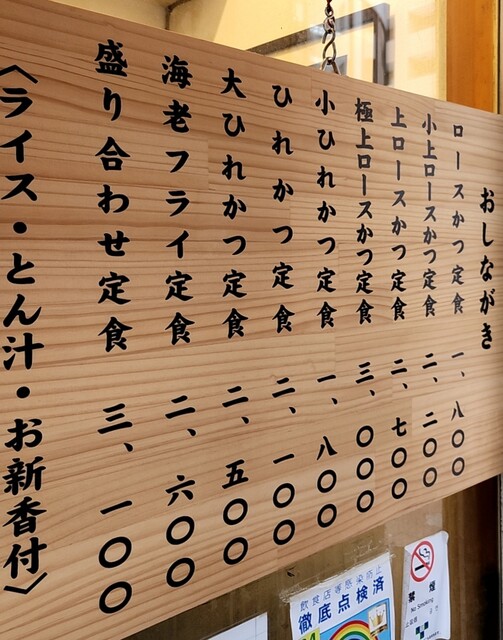 おしながき
ロースかつ定食 一、八〇〇
小上ロースかつ定食 二、二〇〇
上ロースかつ定食 二、七〇〇
極上ロースかつ定食 三、〇〇〇
小ひれかつ定食 一、八〇〇
ひれかつ定食 二、一〇〇
大ひれかつ定食 二、五〇〇
海老フライ定食 二、六〇〇
盛り合わせ定食 三、一〇〇
〈ライス・とん汁・お新香付〉
飲食店等感染防止
徹底点検済
禁煙
No Smoking